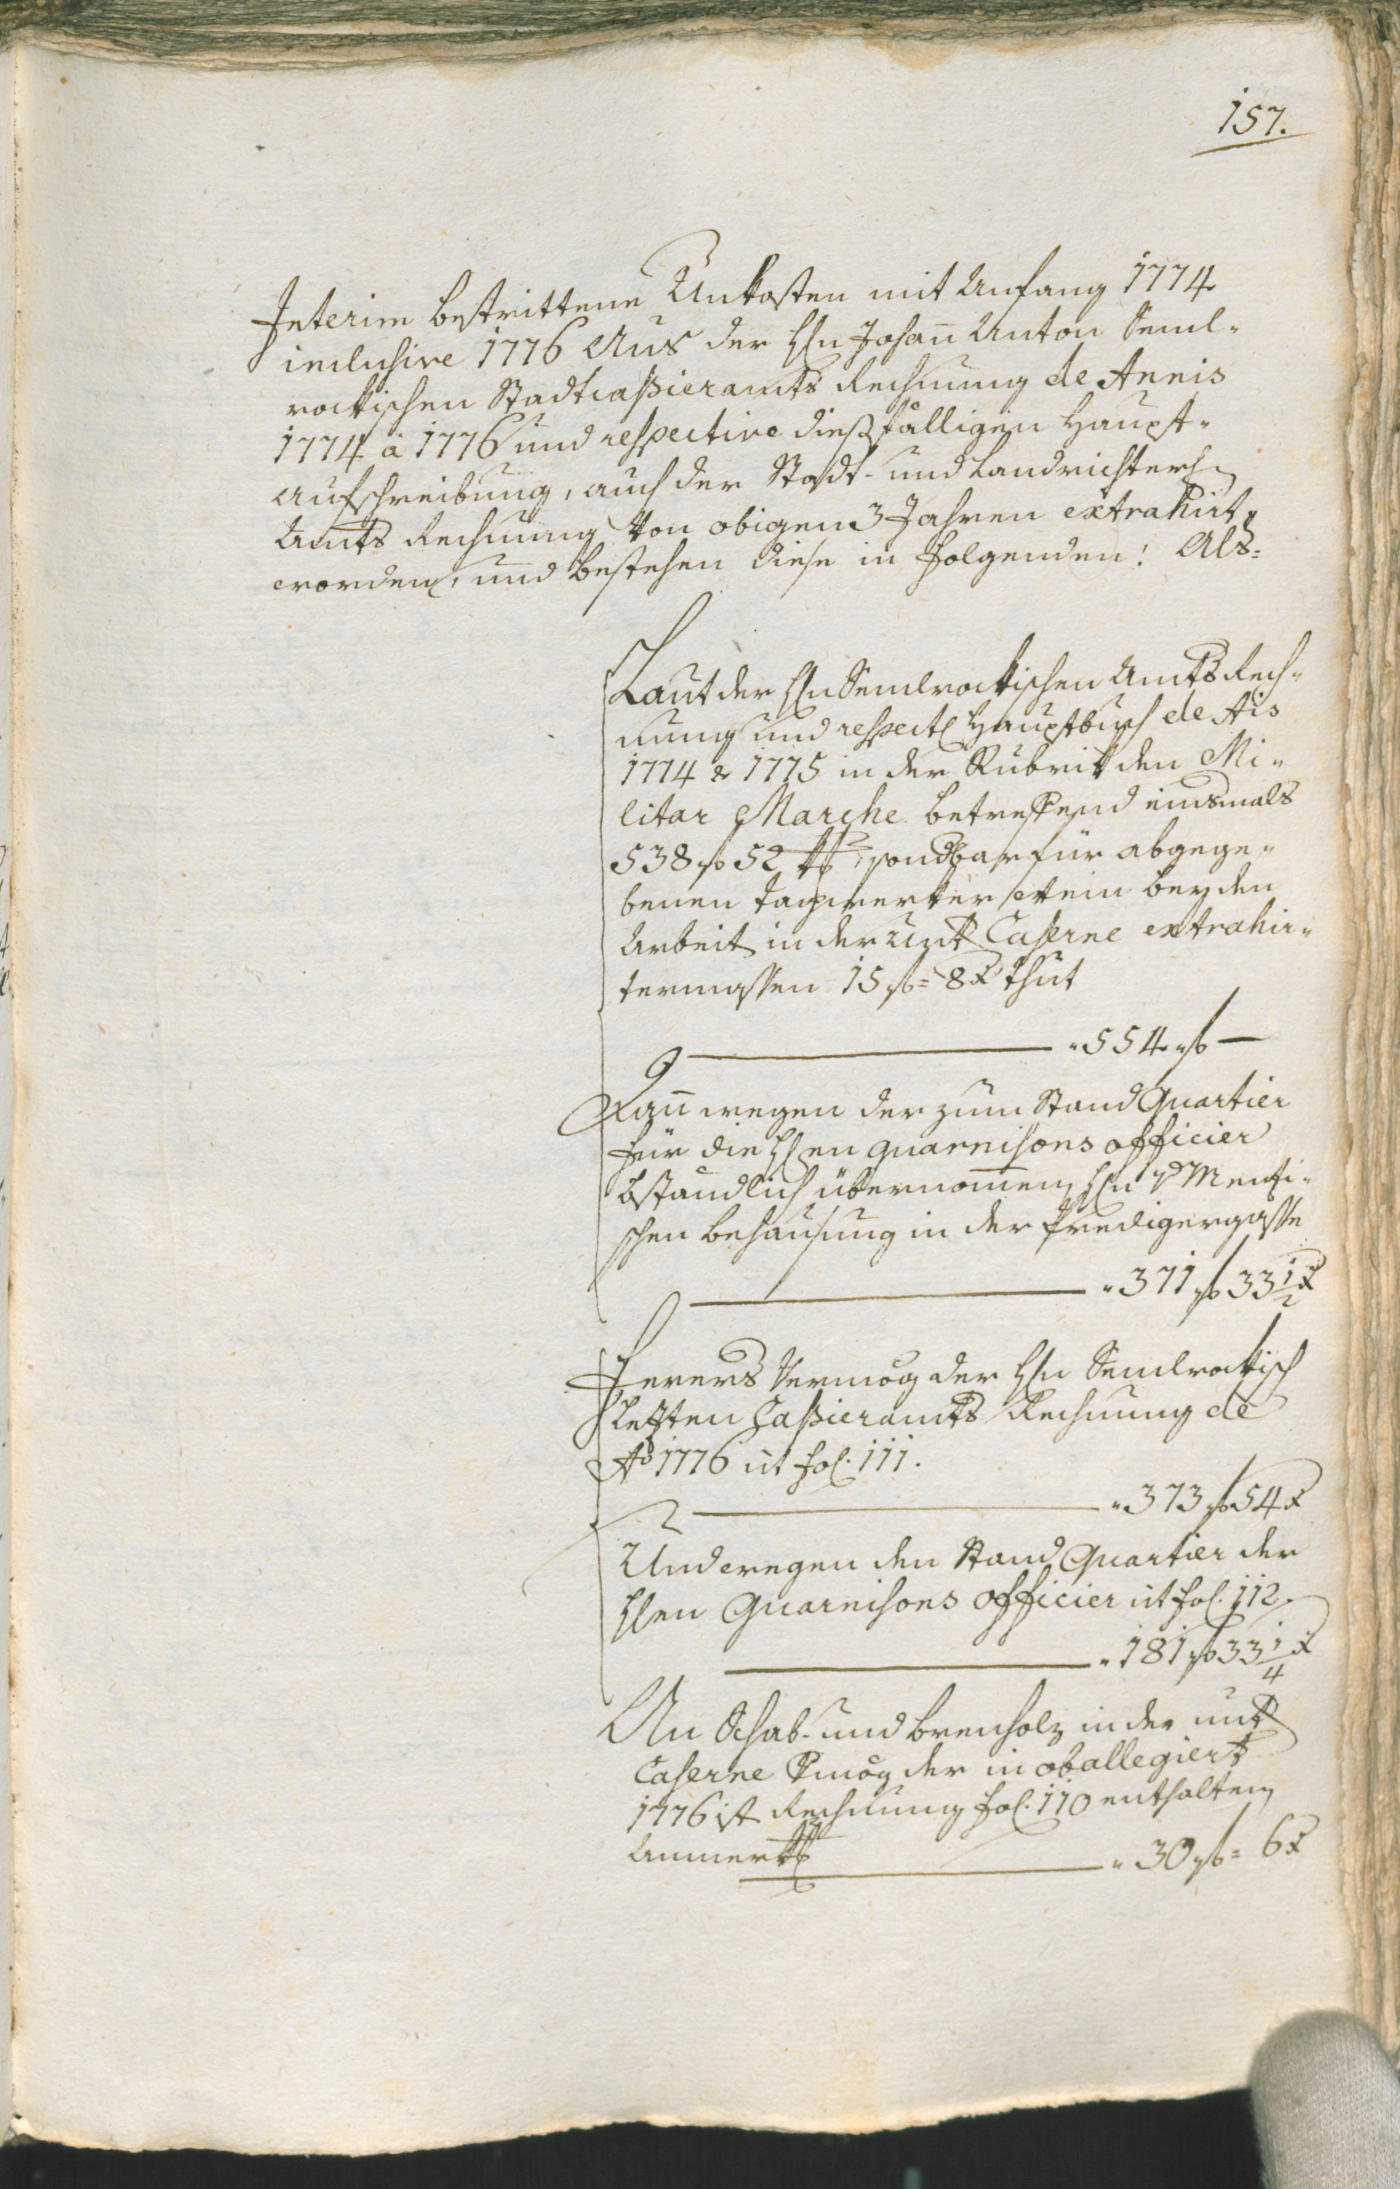 157.
Interim bestrittene Unkosten mit Anfang 1774
inclusive 1776 Aus der Hn Johañ Anton Seml-
rockischen Stadtcaßieramts Rechnung de Annis
1774 à 1776 und respective dießfälligen Haupt-
aufschreibung, auch der Stadt- und Landrichterl
Amts Rechnung von obigen 3 Jahren extrahirt
worden, und bestehen diese in folgenden: Als:
Laut der Hn Semlrockischen Amts Rech-
nung und respect Hauptbuch de Ais
1774 & 1775 in der Rubrik den Mi-
litar Marche betreffend einsmals
538 f 52 für abgege-
benen tagwerker bey den
Arbeit in der Caserne extrahir-
termassen 15 f = 8 x thut
"554 f —
Dañ wegen der zum Stand Quartier
für die Hen quarnisons officier
bständlich übernom̅en Hn v Menti-
schen behausung in der Predigergasse
"371 f 33 1/2 x
Ferers Vermög der Hn Semlrockisch
letzten Caßieramts Rechnung de
Ao 1776 ut fol. 111.
"373 f 54 x
Und wegen den Stand Quartier der
Hen Guarnisons officier ut fol. 112.
"181 f 33 1/4 x
An Schab- und brenholz in der unt
Caserne Vmög der in oballegiert
1776ist Rechnung fol. 110 enthalten
Anmerk
"30 f = 6 x